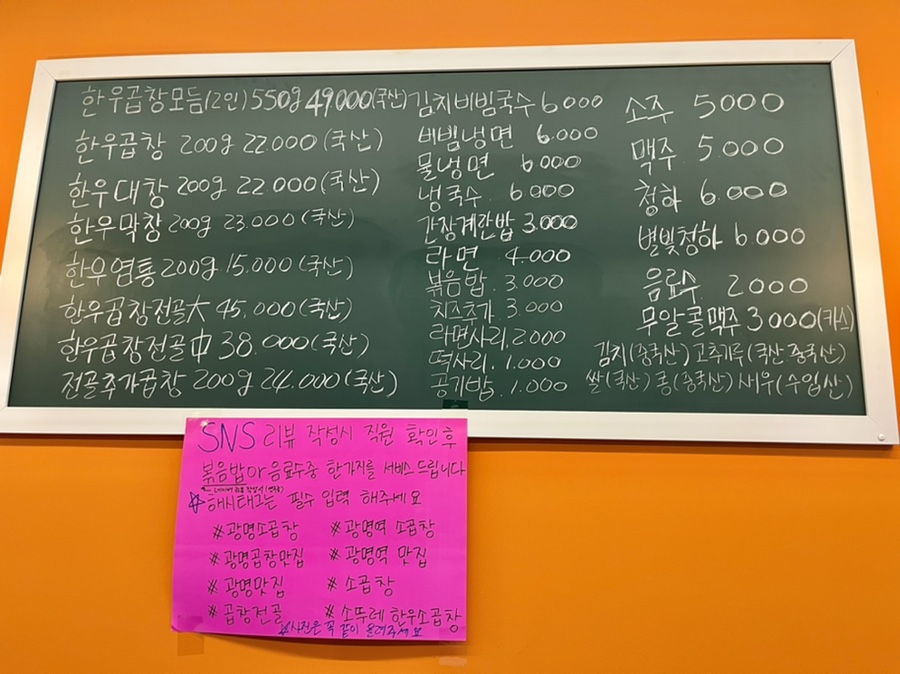 한우곱창모듬(2인) 550g 49000(국산)
한우곱창 200g 22000 (국산)
한우대창 200g 22000 (국산)
한우막창 200g 23.000 (국산)
한우염통 200g 15.000 (국산)
한우곱창전골大 45.000 (국산)
한우곱창전골中 38.000 (국산)
전골추가곱창 200g 24.000 (국산)
김치비빔국수 6000
비빔냉면 6.000
물냉면 6000
냉국수 6000
간장계란밥 3.000
라면 4.000
볶음밥 3.000
치즈추가 3.000
라면사리 2000
떡사리 1.000
공기밥 1.000
소주 5000
맥주 5.000
청하 6.000
별빛청하 6.000
음료수 2000
무알콜맥주 3000 (카스)
김치(중국산) 고춧가루(국산 중국산)
쌀(국산) 콩(중국산) 새우(수입산)
SNS 리뷰 작성시 직원 확인후
볶음밥이나 음료수중 한가지를 서비스 드립니다
☆해시태그는 필수 입력 해주세요
#광명소곱창 #광명역 소곱창
#광명곱창맛집 #광명역 맛집
#광명맛집 #소곱창
#곱창전골 #소뚜레 한우소곱창
☆사진은 꼭 같이 올려주세요